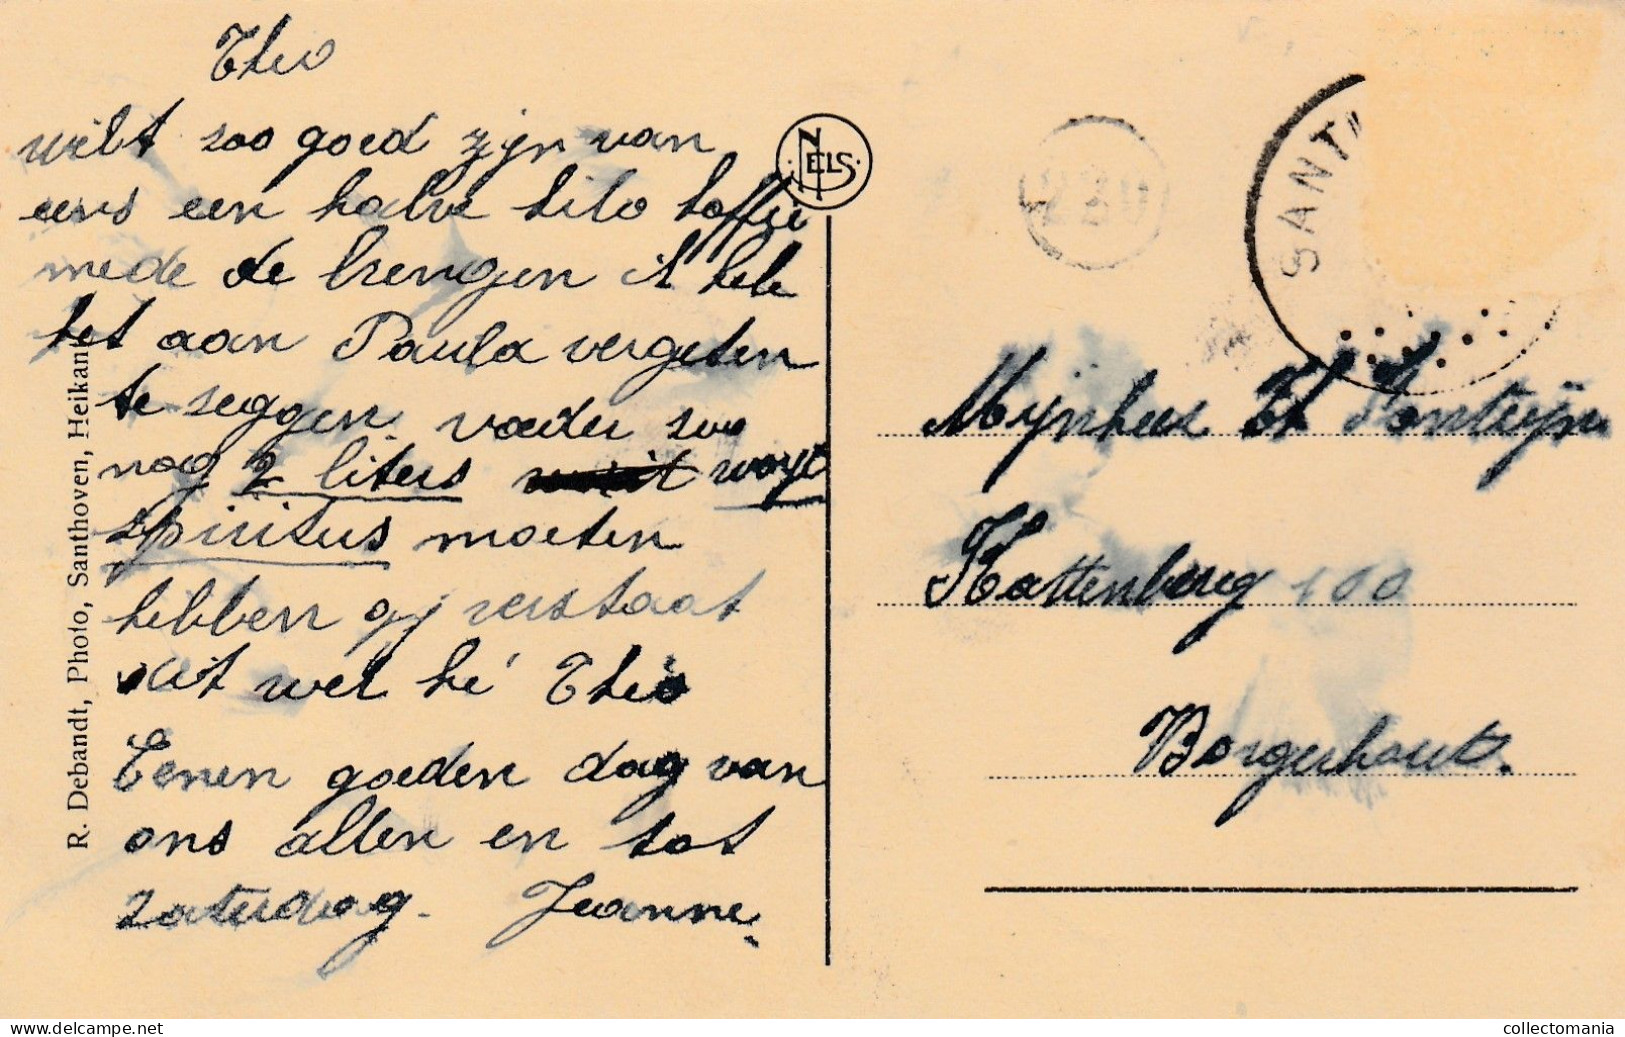 Theo
wilt zoo goed zijn van
eens een halve kilo koffie
mede de brengen ik heb
het aan Paula vergeten
te zeggen. vader zoo
nog 2 liters
spiritus moeten
hebben gij verstaat
dit wel hé Theo
Eenen goeden dag van
ons allen en tot
zaterdag. Jeanne.
R. Debandt, Photo, Santhoven, Heikant
NELS
SANT
Mijnheer Th
Kattenberg 100
Borgerhout.
collectomania